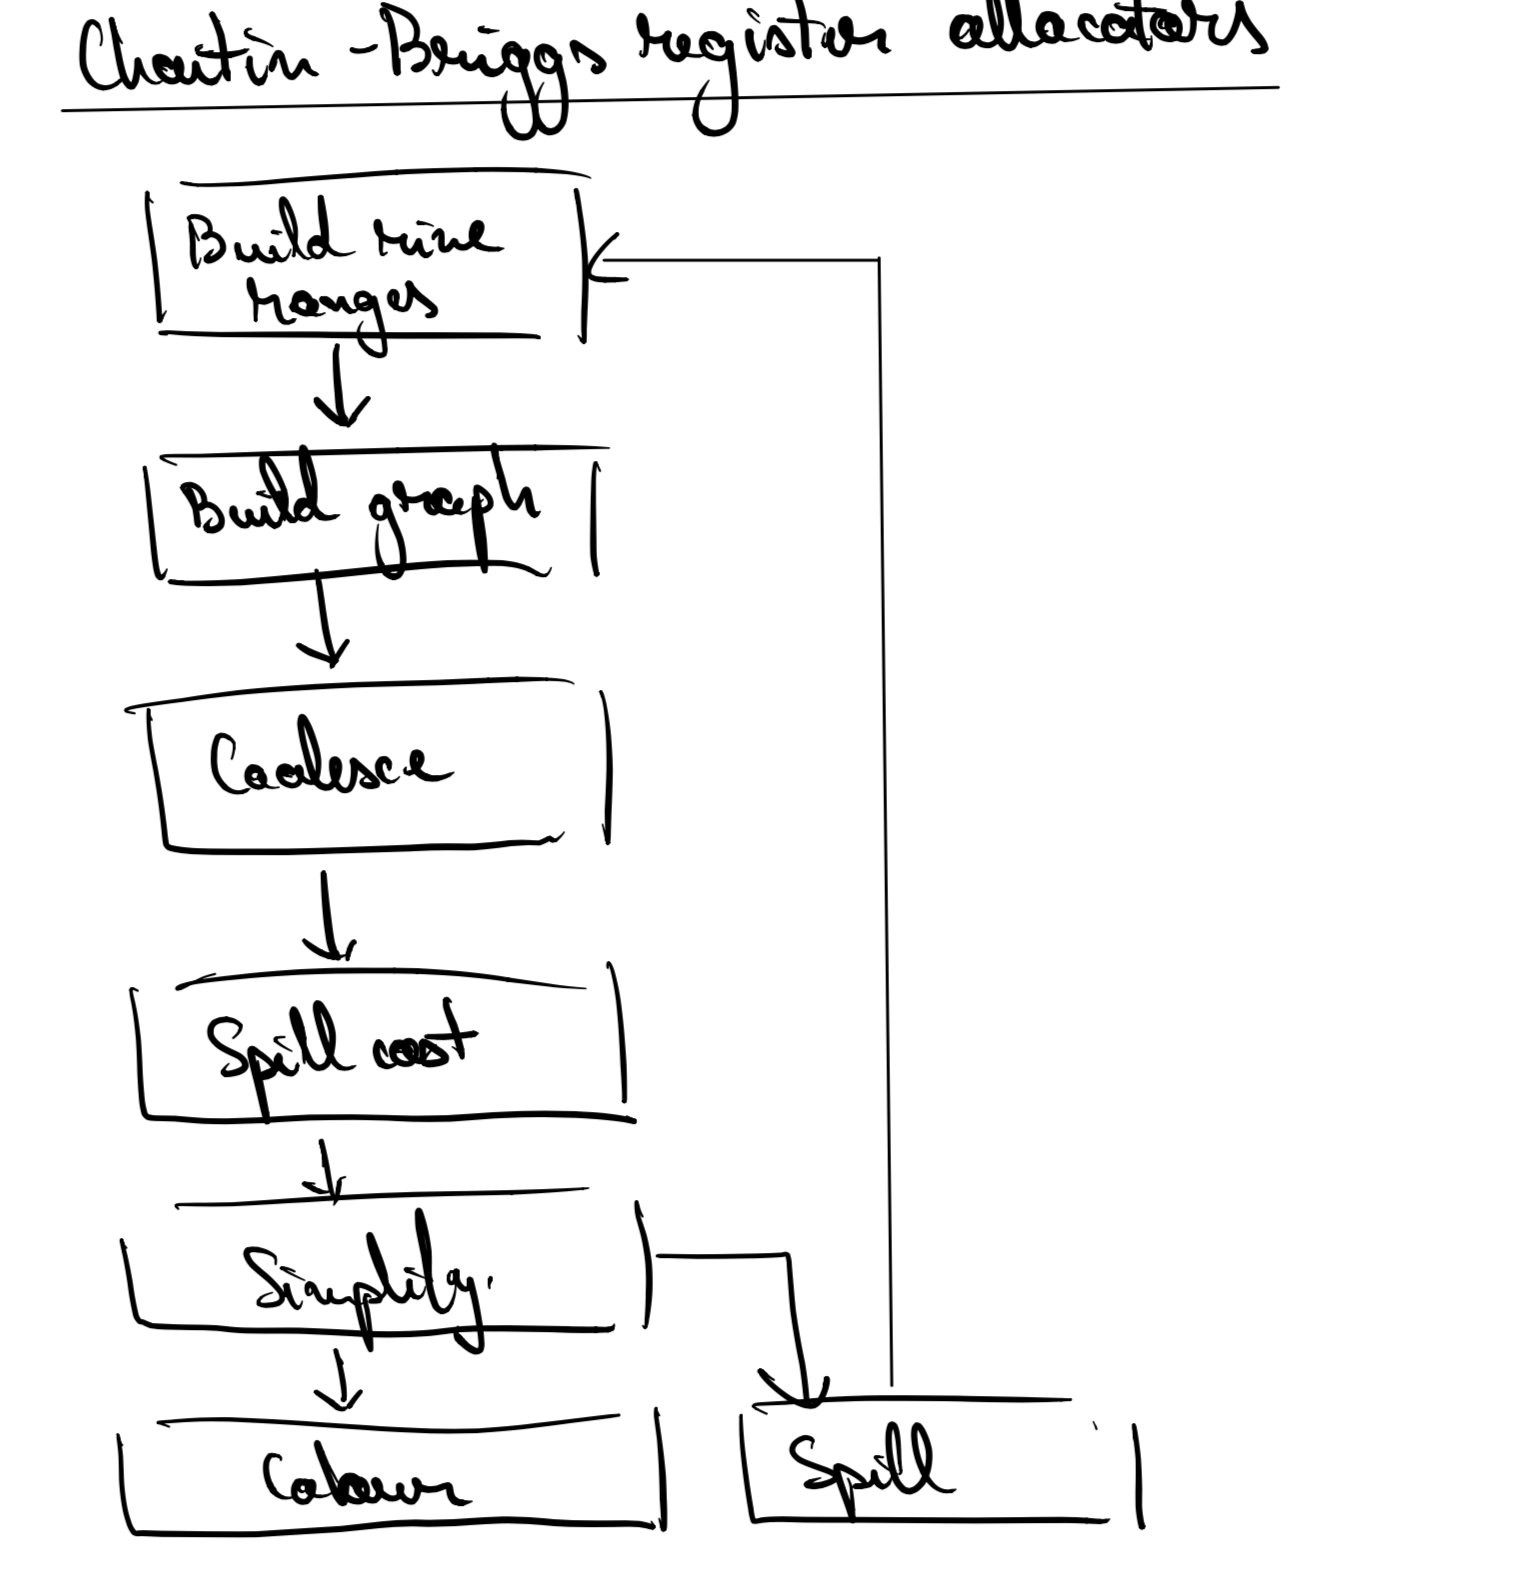 Chaitin-Briggs register allocators
Build live
ranges
Build graph
Coalesce
Spill cost
Simplify.
Colour
Spill